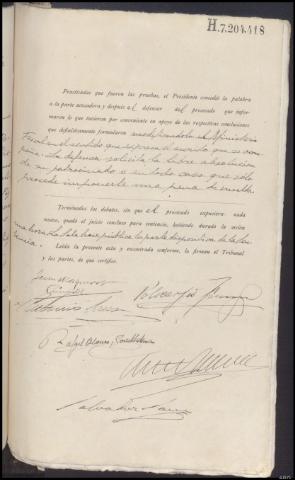 H.7.204,418
Practicadas que fueron las pruebas, el Presidente concedió la palabra
a la parte acusadora y después al defensor del procesado que infor-
maron lo que tuvieron por conveniente en apoyo de las respectivas conclusiones
que definitivamente formularon modificándola el Ministerio
Fiscal en el sentido que expresa el escrito que se acom-
paña. La defensa solicita la libre absolución
de su patrocinado o en todo caso que solo
procede imponerle una pena de multa.
Terminados los debates, sin que el procesado expusiera nada
nuevo, quedó el juicio concluso para sentencia, habiendo durado la sesión
una hora. La Sala hace pública la parte dispositiva de la sen-
tencia.
Leída la presente acta y encontrada conforme, la firman el Tribunal
y las partes, de que certifico.
Rafael
Salvador